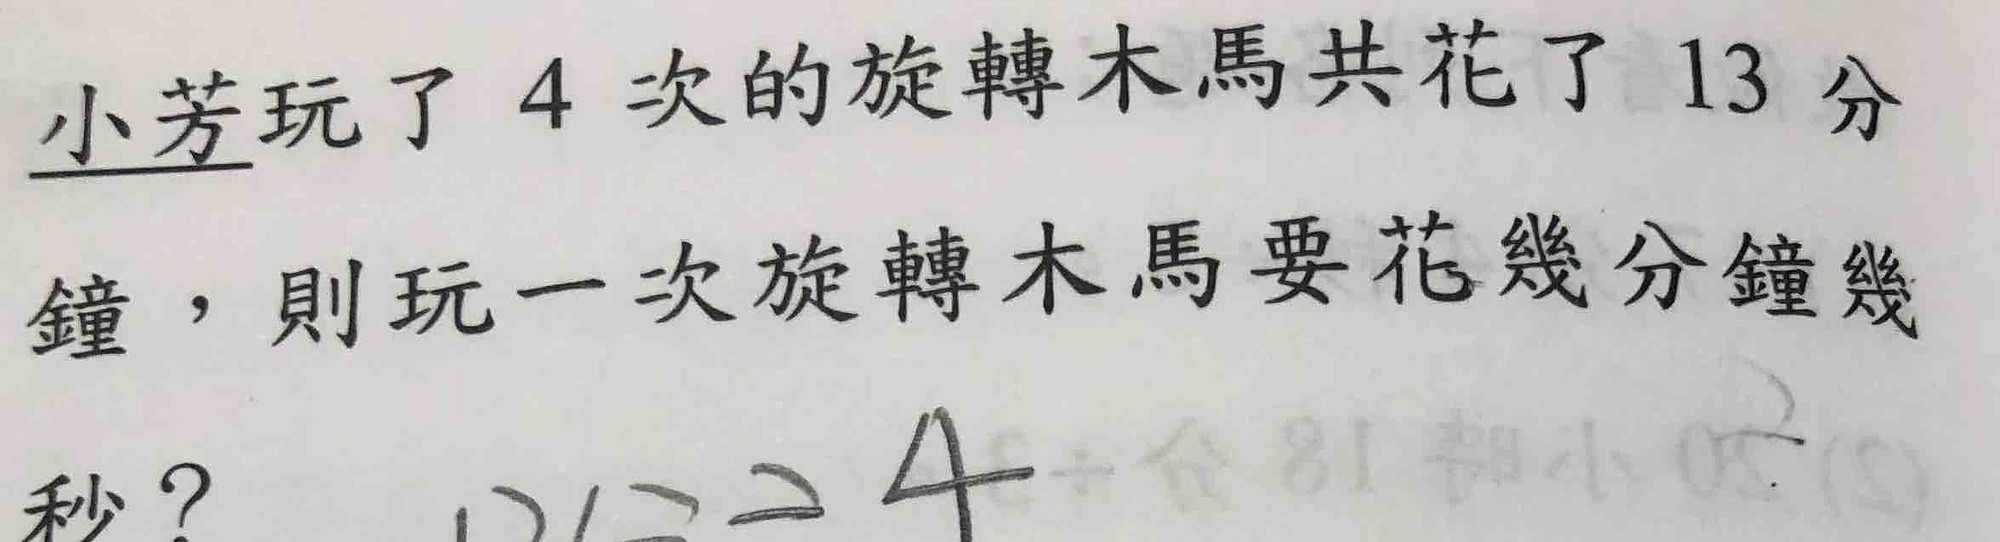 小芳玩了 4 次的旋轉木馬共花了 13 分
鐘，則玩一次旋轉木馬要花幾分鐘幾
秒？